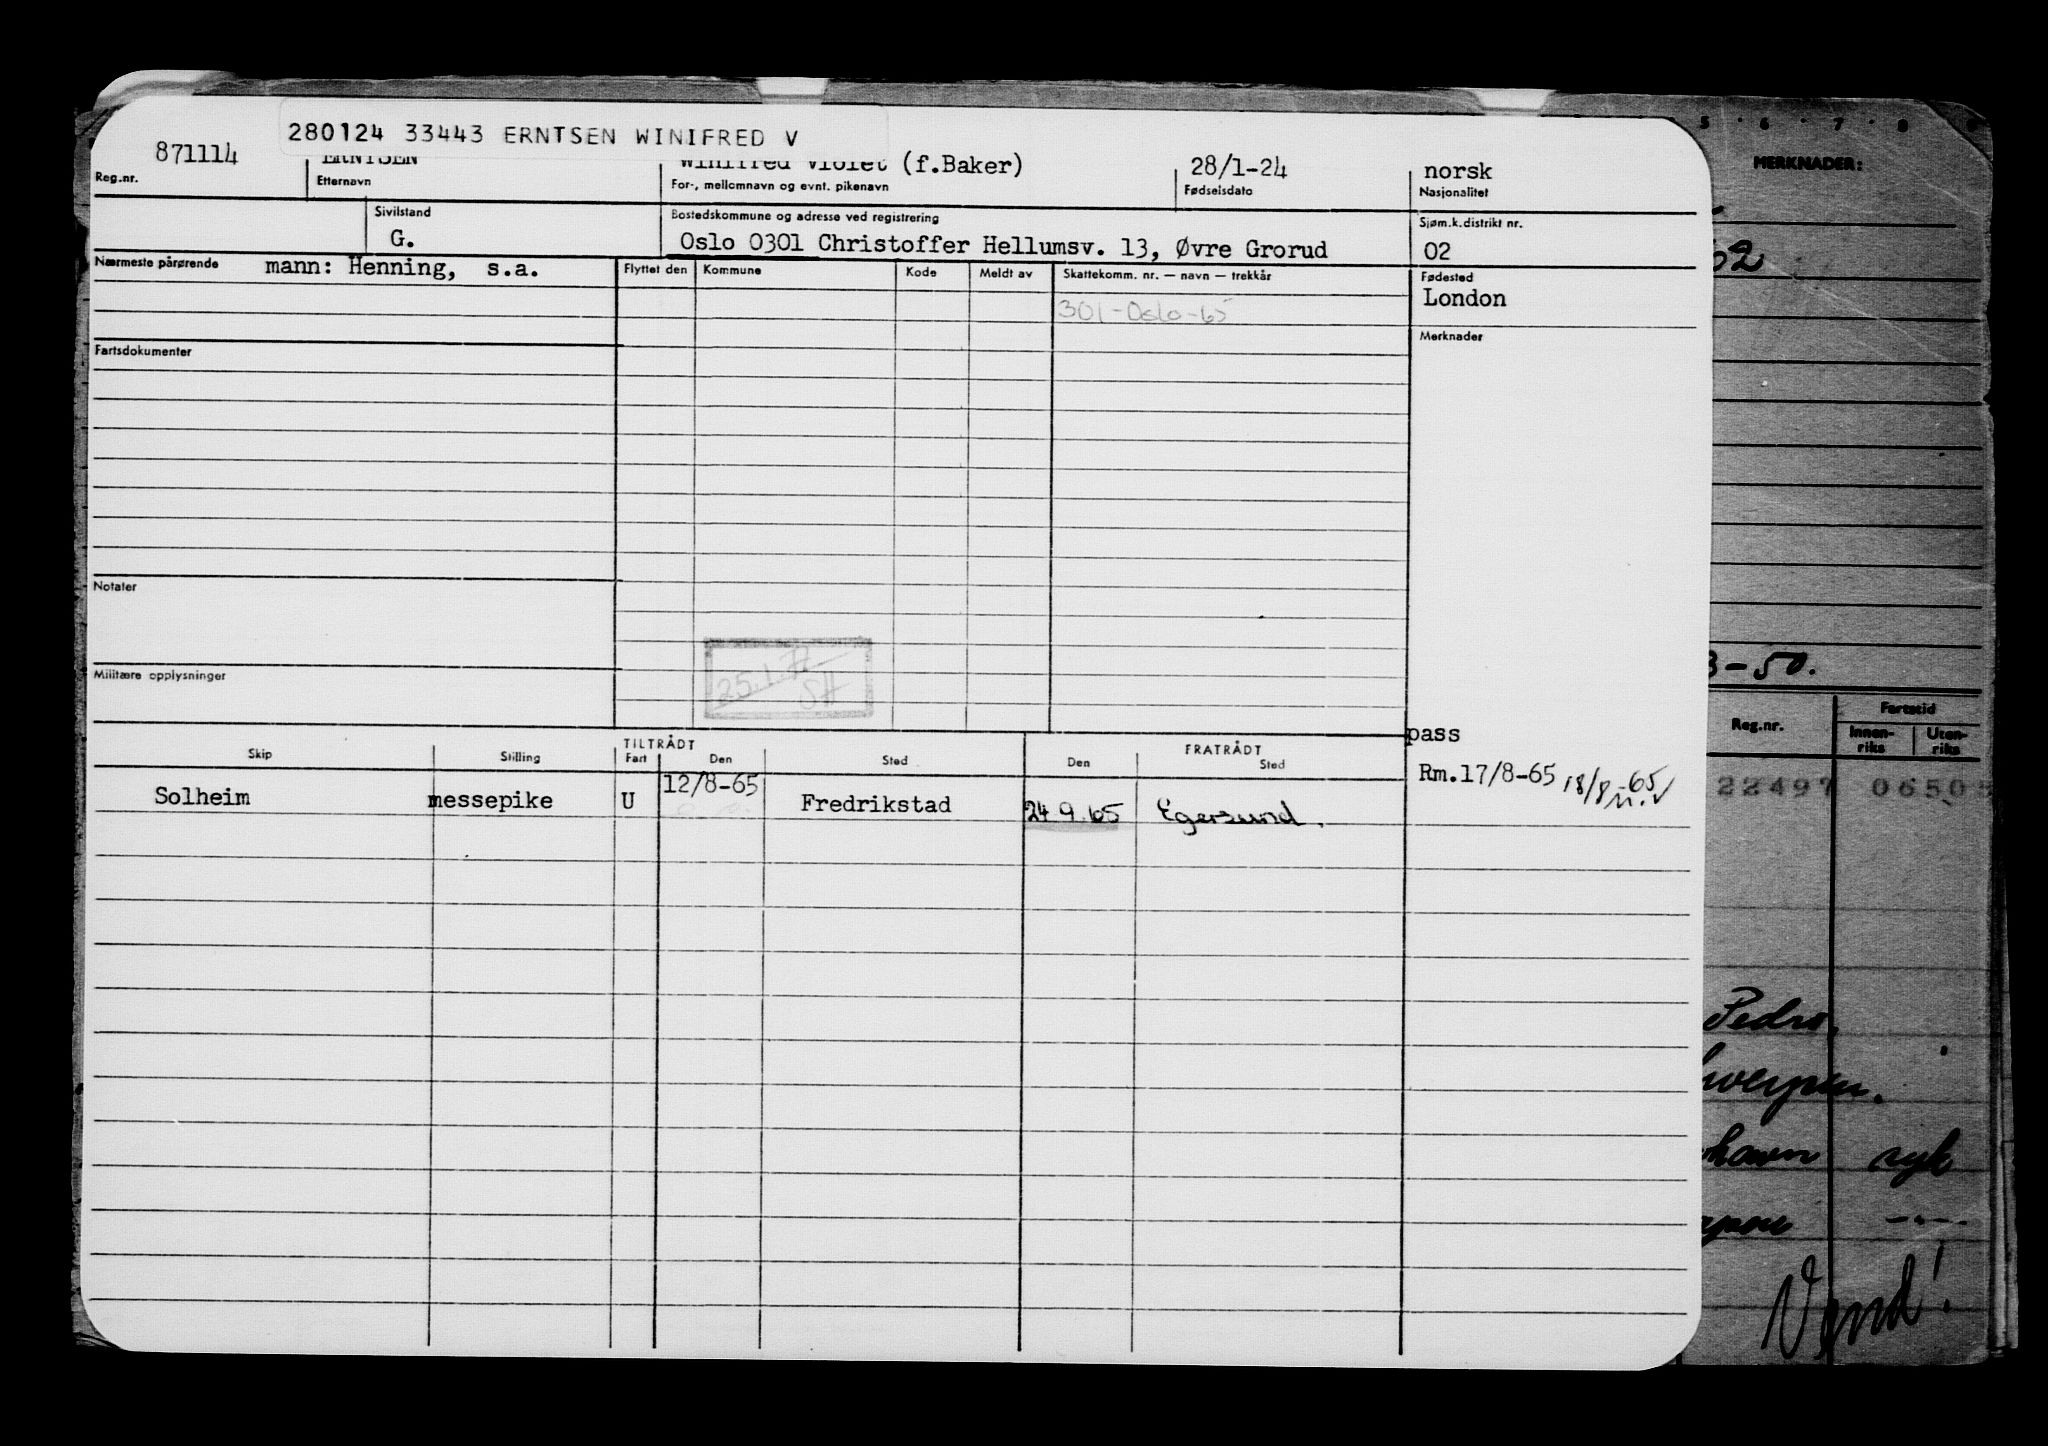 280124 33443 ERNTSEN WINIFRED V
871114 ERNTSEN Winifred Violet (f.Baker) 28/1-24 norsk
Reg.nr. Etternavn For-, mellomnavn og evnt. pikenavn Fødselsdato Nasjonalitet
Sivilstand Bostedskommune og adresse ved registrering Sjøm.k.distrikt nr.
G. Oslo 0301 Christoffer Hellumsv. 13, Øvre Grorud 02
Nærmeste pårørende mann: Henning, s.a. Flyttet den Kommune Kode Meldt av Skattekomm. nr. — navn — trekkår Fødested
London
301-Oslo-65
Merknader
Fartsdokumenter
Notater
Militære opplysninger
25.1.
SH
pass
TILTRÅDT FRATRÅDT
Skip Stilling Fart Den Sted Den Sted
Rm.17/8-65 18/8-65
Solheim messepike U 12/8-65 Fredrikstad 24.9.65 Egersund.
5 · 6 · 7 · 8
MERKNADER:
62
3-50.
Reg.nr. Fartstid
Innen-riks Uten-riks
22497 0650
Pedro.
werpen.
havn syk
Vend!